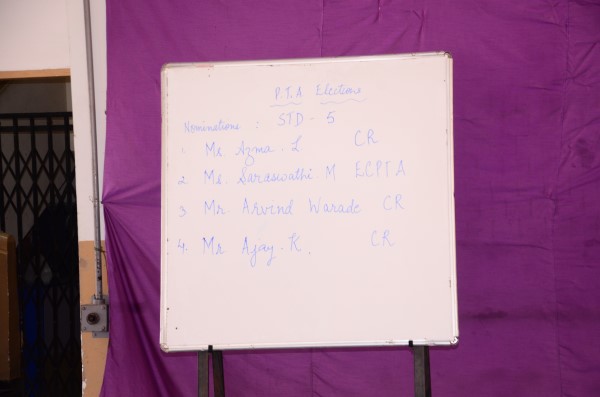 P.T.A Elections
Nominations : STD - 5
1. Ms. Azma . L. CR
2. Ms. Saraswathi. M ECPTA
3 Mr. Arvind Warade CR
4. Mr Ajay. K. CR